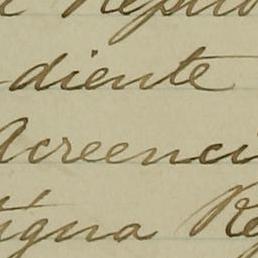 Repu
diente
Acreenci
tigua Re